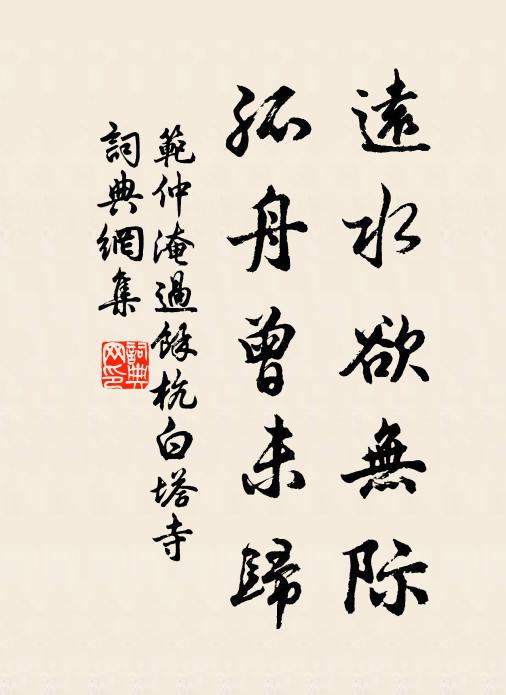 遠水欲無際
孤舟曾未歸
範仲淹過餘杭白塔寺
詞典網集
詞典網印